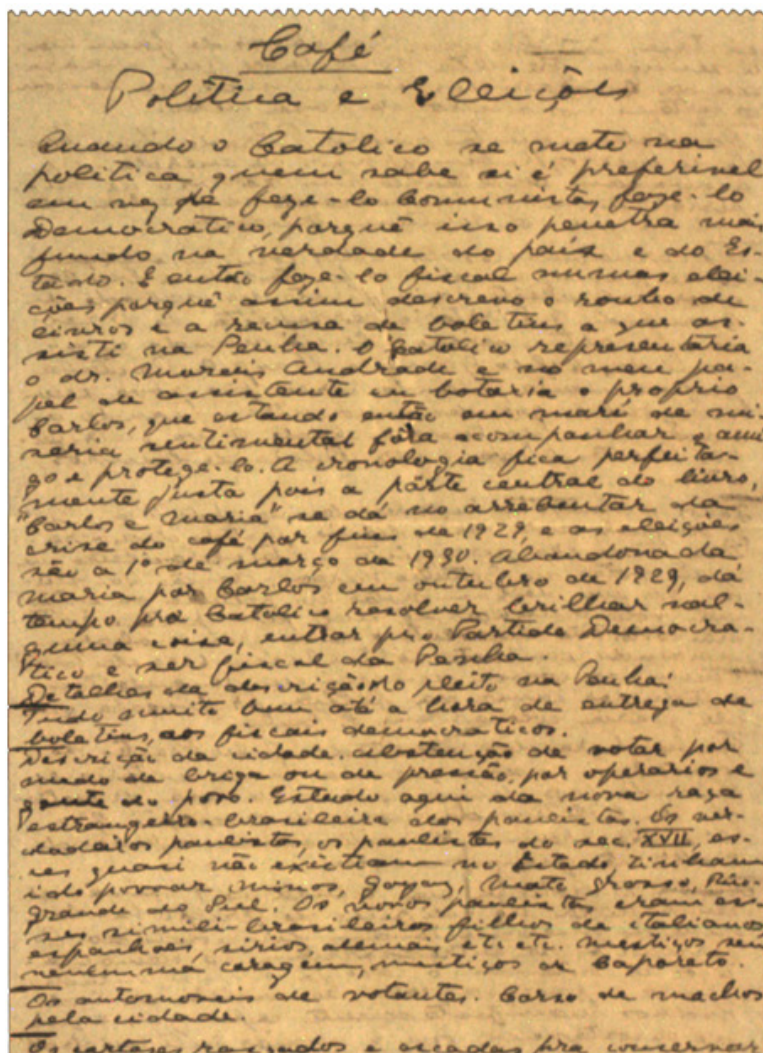 Café
Politica e Eleições
Quando o Catolico se mete na
politica quem sabe si é preferivel
em vez de faze-lo Communista, faze-lo
Democratico, porquê isso penetra mais
fundo na verdade do país e do Es-
tado. E então faze-lo fiscal numas elei-
ções porquê assim descrevo o roubo de
livros e a recusa de boletins a que as-
sisti na Penha. O Catolico representaria
o dr. Moraes Andrade e no meu pa-
pel de assistente eu botaria o proprio
Carlos, que estando então em maré de mi-
seria sentimental fôra acompanhar o ami-
go e protege-lo. A cronologia fica perfeita-
mente justa pois a parte central do livro,
"Carlos e Maria" se dá no arrebentar da
crise do café por fins de 1929, e as eleições
são a 1º de março de 1930. Abandonada
Maria por Carlos em outubro de 1929, dá
tempo prá Catolico resolver brilhar nal-
guma coisa, entrar pro Partido Democra-
tico e ser fiscal da Penha.
Detalhes da descrição do pleito na Penha:
Tudo muito bem até a hora de entrega de
boletins, aos fiscais democraticos.
Descrição da cidade. Abstenção de votar por
medo de briga ou de pressão, por operarios e
gente do povo. Estudo aqui da nova raça
estrangeiro-brasileira dos paulistas. Os ver-
dadeiros paulistas, os paulistas do sec. XVII, es-
ses quasi não existiam no Estado, tinham
ido povoar Minas, Goyaz, Mato Grosso, Rio
Grande do Sul. Os novos paulistas eram es-
ses simili-brasileiros filhos de italianos
espanhoes, sirios, alemais etc etc. mestiços sem
nenhuma coragem, mestiços de Caporeto.
Os automoveis de votantes. Corso de machos
pela cidade.
Os cartazes rasgados e escadas pra conservar